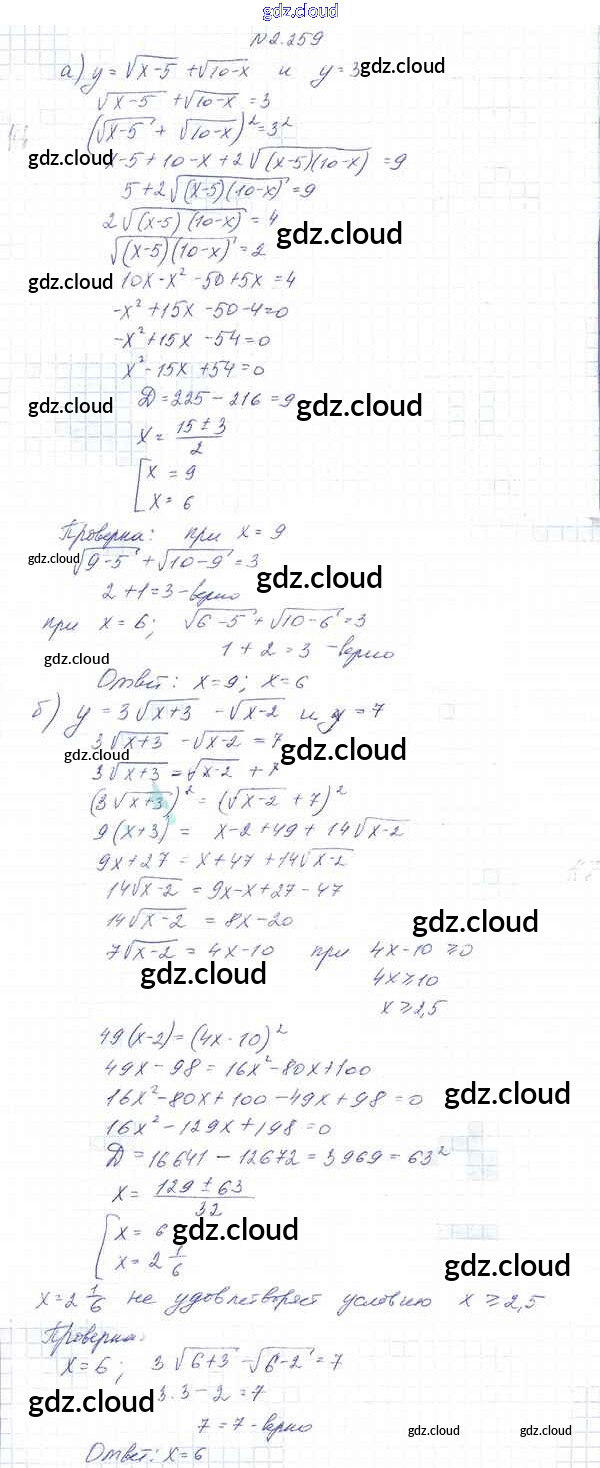 www.gdz.cloud
№2.259
а) y = √x-5 + √10-x и y = 3 gdz.cloud
√x-5 + √10-x = 3
(√x-5 + √10-x)² = 3²
gdz.cloud x-5+10-x+2√(x-5)(10-x) = 9
5+2√(x-5)(10-x) = 9
2√(x-5)(10-x) = 4 gdz.cloud
√(x-5)(10-x) = 2
gdz.cloud 10x-x²-50+5x=4
-x²+15x-50-4=0
-x²+15x-54=0
x²-15x+54=0
gdz.cloud D=225-216=9 gdz.cloud
x= 15±3/2
[x = 9
x= 6
Проверка: при x=9
gdz.cloud √9-5 + √10-9 = 3 gdz.cloud
2+1=3-верно
при x=6; √6-5 + √10-6 = 3
gdz.cloud 1+2=3-верно
Ответ: x=9; x=6
б) y = 3√x+3 - √x-2 и y = 7
3√x+3 - √x-2 = 7 gdz.cloud
gdz.cloud
3√x+3 = √x-2 + 7
(3√x+3)² = (√x-2 + 7)²
9(x+3) = x-2+49+14√x-2
9x+27 = x+47+14√x-2
14√x-2 = 9x-x+27-47
14√x-2 = 8x-20 gdz.cloud
7√x-2 = 4x-10 при 4x-10≥0
gdz.cloud 4x≥10
x≥2,5
49(x-2)=(4x-10)²
49x-98=16x²-80x+100
16x²-80x+100-49x+98=0 gdz.cloud
16x²-129x+198=0
D=16641-12672=3969=63²
x= 129±63/32
[x= 6 gdz.cloud
x= 2 1/6 gdz.cloud
x=2 1/6 не удовлетворяет условию x≥2,5
Проверка:
x=6; 3√6+3 - √6-2 = 7
gdz.cloud 3·3-2=7
7=7-верно gdz.cloud gdz.cloud
Ответ: x=6